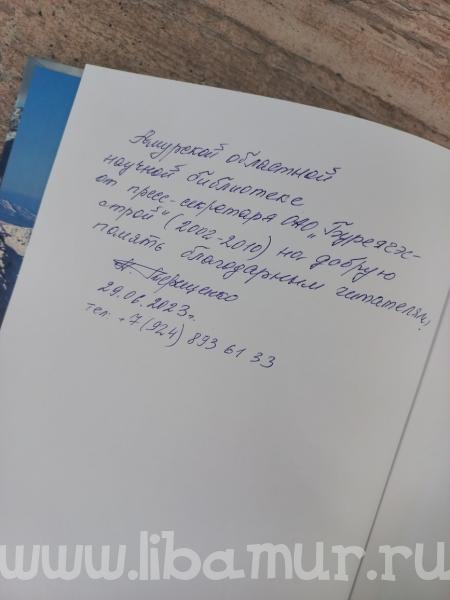 Амурской областной
научной библиотеке
от пресс-секретаря ОАО „Буреягэс-
строй" (2002-2010) на добрую
память благодарным читателям!
Терещенко
29.06.2023г.
тел. +7(924) 893 61 33
www.libamur.ru